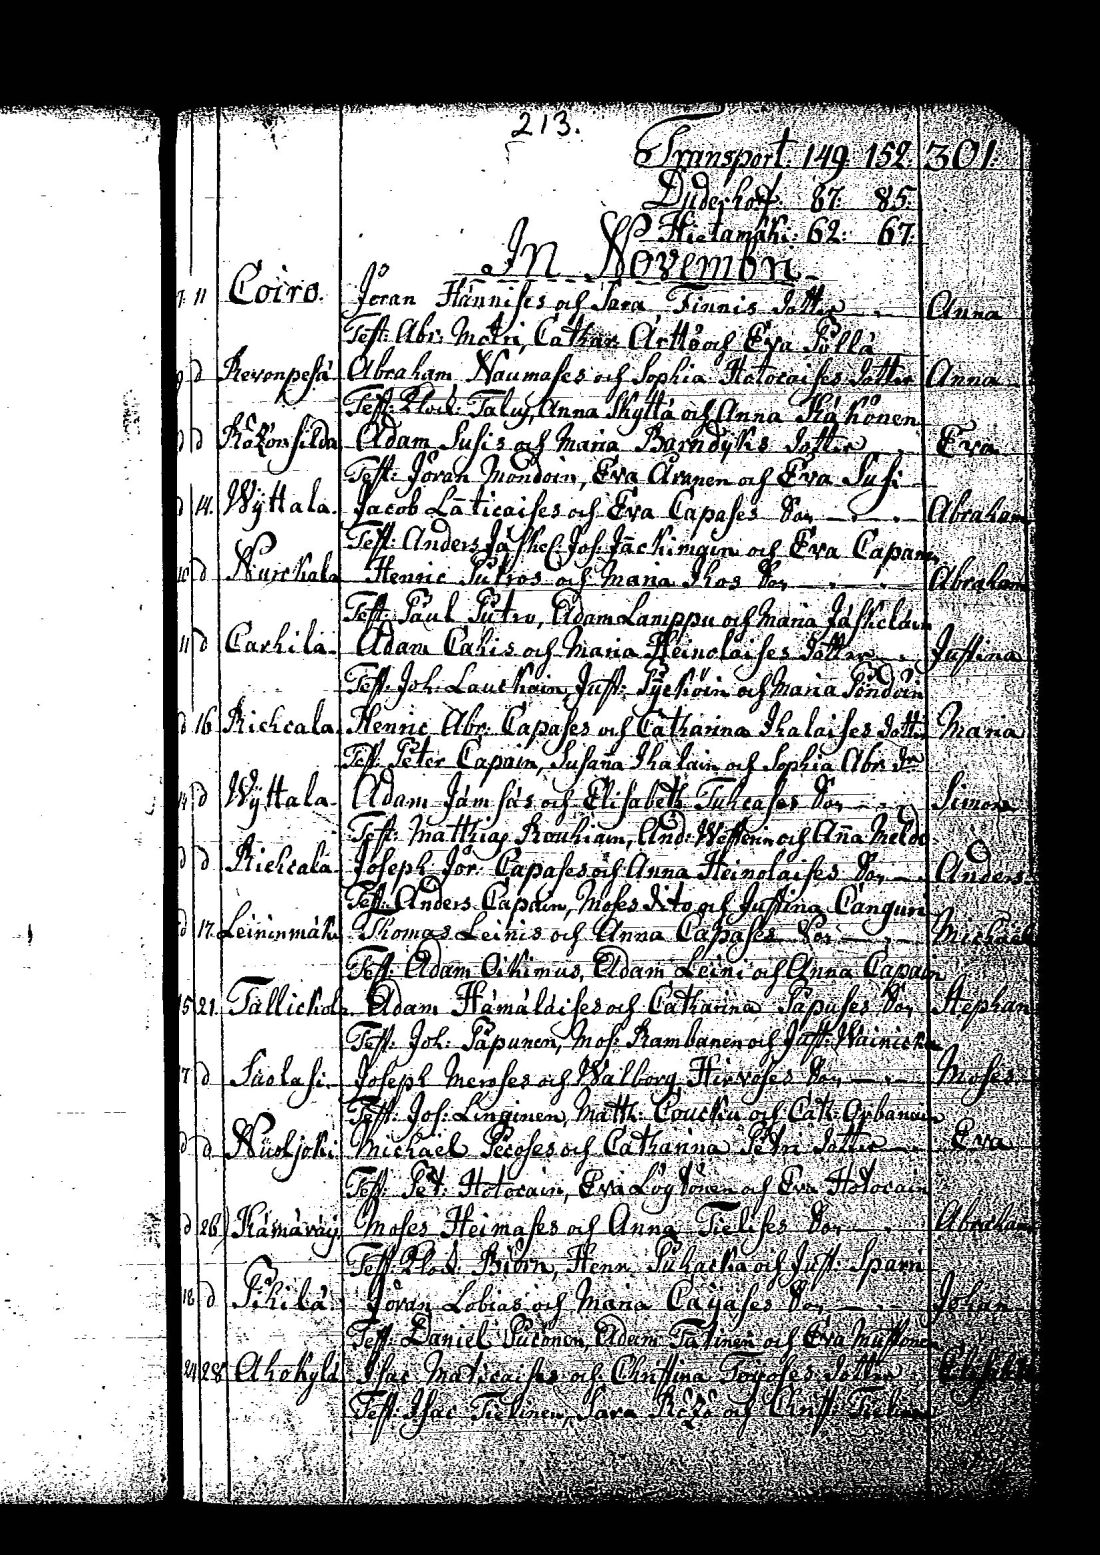 213.
Transport: 149. 152. 301.
Duderhoff: 87: 85:
Hietamäki: 62: 67:
In Novembri
7. 11 Coiro. Jöran Hännises och Sara Finnis dotter Anna
Test: Abr: Mctri, Cathar: Arttö och Eva Pöllä
9 d Revonpesä Abraham Naumases och Sophia Hotocaises dotter Anna
Test: Klock: Talus, Anna Skyttä och Anna Kähönen
d d Adam Susis och Maria Barndyks dotter Eva
Test: Jöran Mondoin, Eva Avanen och Eva Susi
d 14. Wyttala. Jacob Laticaises och Eva Capases Son Abraham
Test: Anders Jäskel: Joh: Jäckimäin och Eva Capain
10 d Nurckala Henric Putros och Maria Ihos Son Abraham
Test: Paul Putro, Adam Lamppu och Maria Jäskeläin
11 d Carhila. Adam Cakis och Maria Heinolaises dotter Justina
Test: Joh: Lauckain, Just: Pycköin och Maria Pöndöin
d 16. Riehcala. Henric Abr: Capases och Catharina Ihalaises dotter Maria
Test: Peter Capain, Susana Ihalain och Sophia Abr: dr
14 d Wyttala. Adam Jämsäs och Elisabeth Tuhcases Son Simon
Test: Matthias Rouhiain, And: Westerin och Aña Meldo
d d Riehcala. Joseph Jör: Capases och Anna Heinolaises Son Anders
Test: Anders Capain, Moses dito och Justina Canguri
d 17. Leininmäki Thomas Leinis och Anna Capases Son Michael
Test: Adam Oikimus, Adam Leini och Anna Capain
15 21. Tallickola Adam Hämäläises och Catharina Papuses Son Stephan
Test: Joh: Papunen, Mos: Rambanen och Just: Wainicka
17 d Suolasi. Joseph Meroses och Walborg Hirvoses Son Moses
Test: Jos: Linginen, Matth: Coucku och Cath: Orbanain
d d Nuoljoki Michael Pecoses och Catharina Petri dotter Eva
Test: Pet: Hotocain, Eva Löytönen och Eva Hotocain
d 26 Kämäräy Moses Heimases och Anna Tielises Son Abraham
Test: Klock: Biörn, Henr: Puhacka och Just: Sparri
18 d Pikilä: Jöran Lobias och Maria Cayases Son Johan
Test: Daniel Puconen, Adam Tatinen och Eva Mustonen
24 28 Ahokylä Isac Maticaises och Christina Toyoses dotter Elisabeth
Test: Isac Tielinen, Sara Rözö och Christ: Tielinen